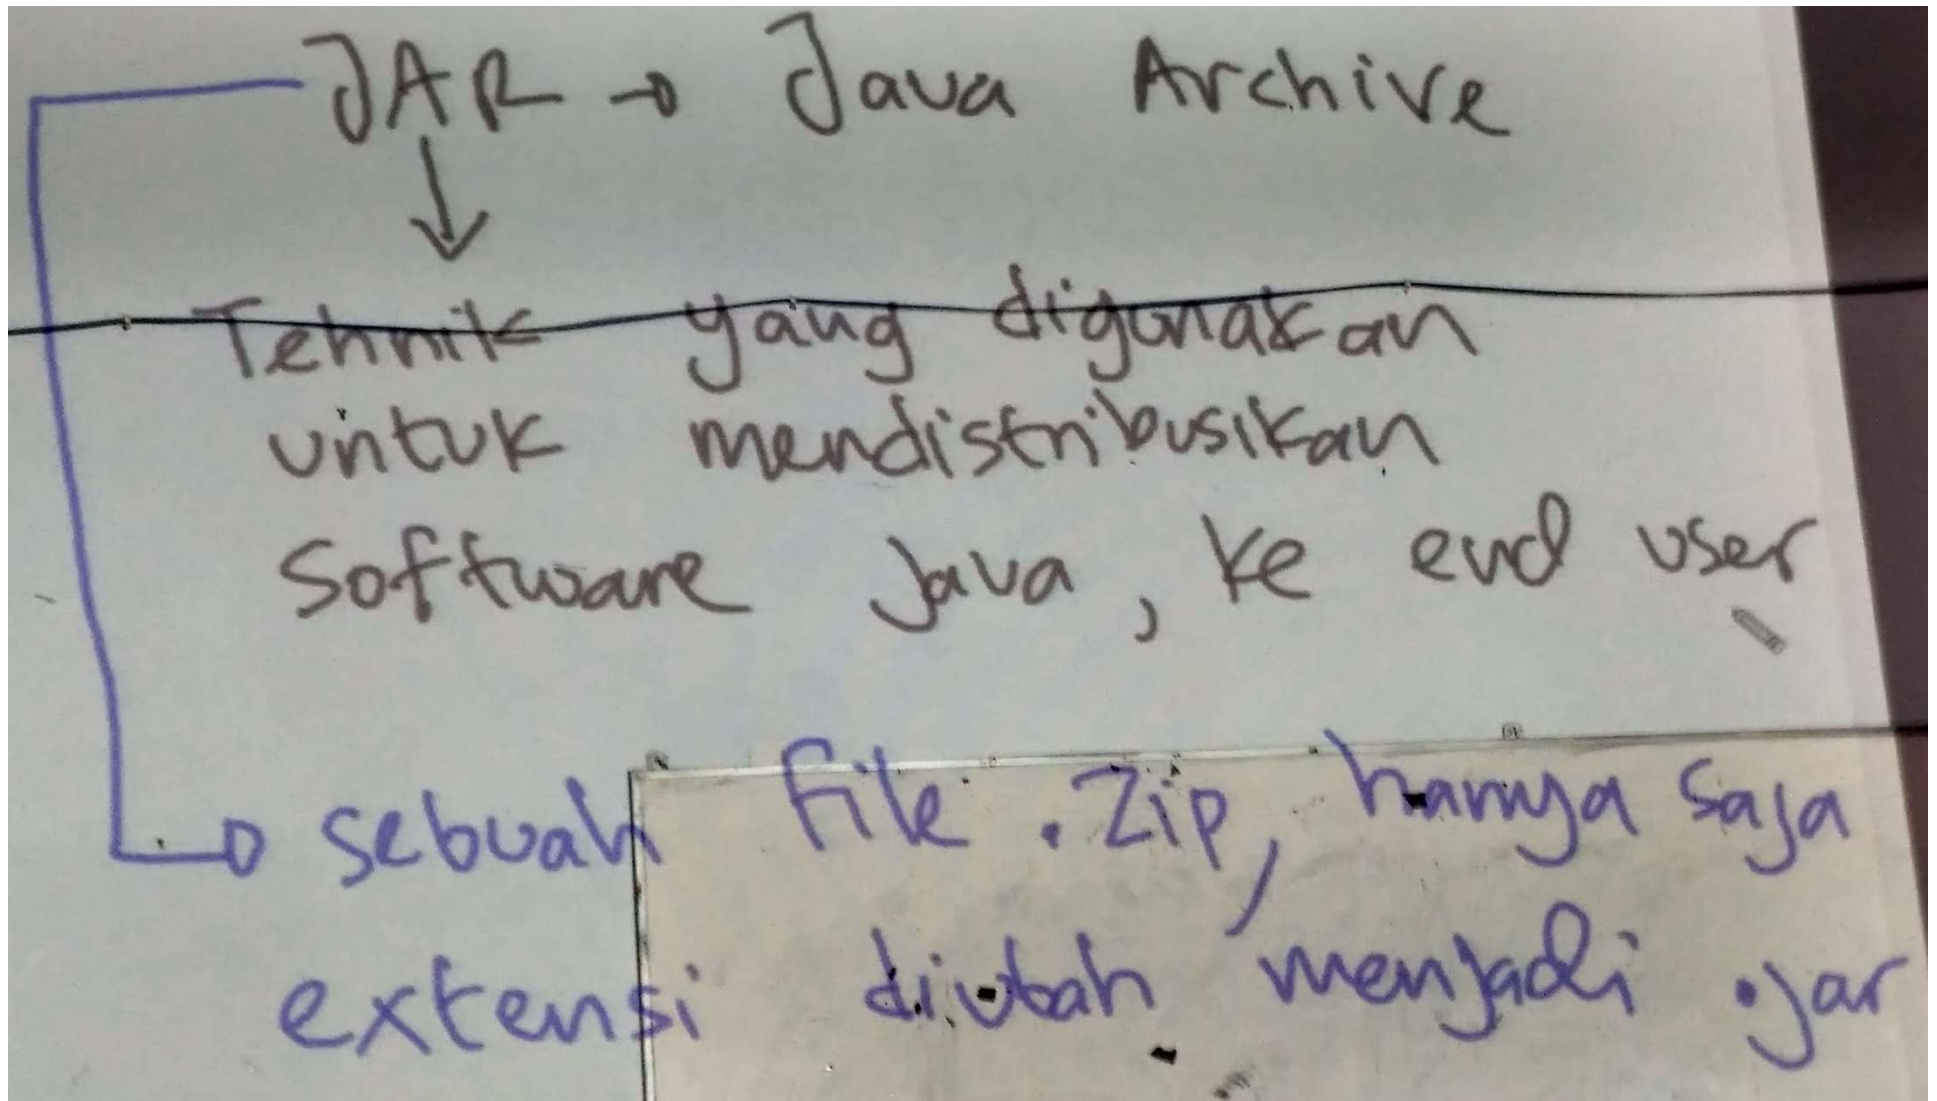 JAR → Java Archive
↓
Tehnik yang digunakan
untuk mendistribusikan
Software Java, ke end user
→ sebuah file .zip, hanya saja
extensi diubah menjadi .jar